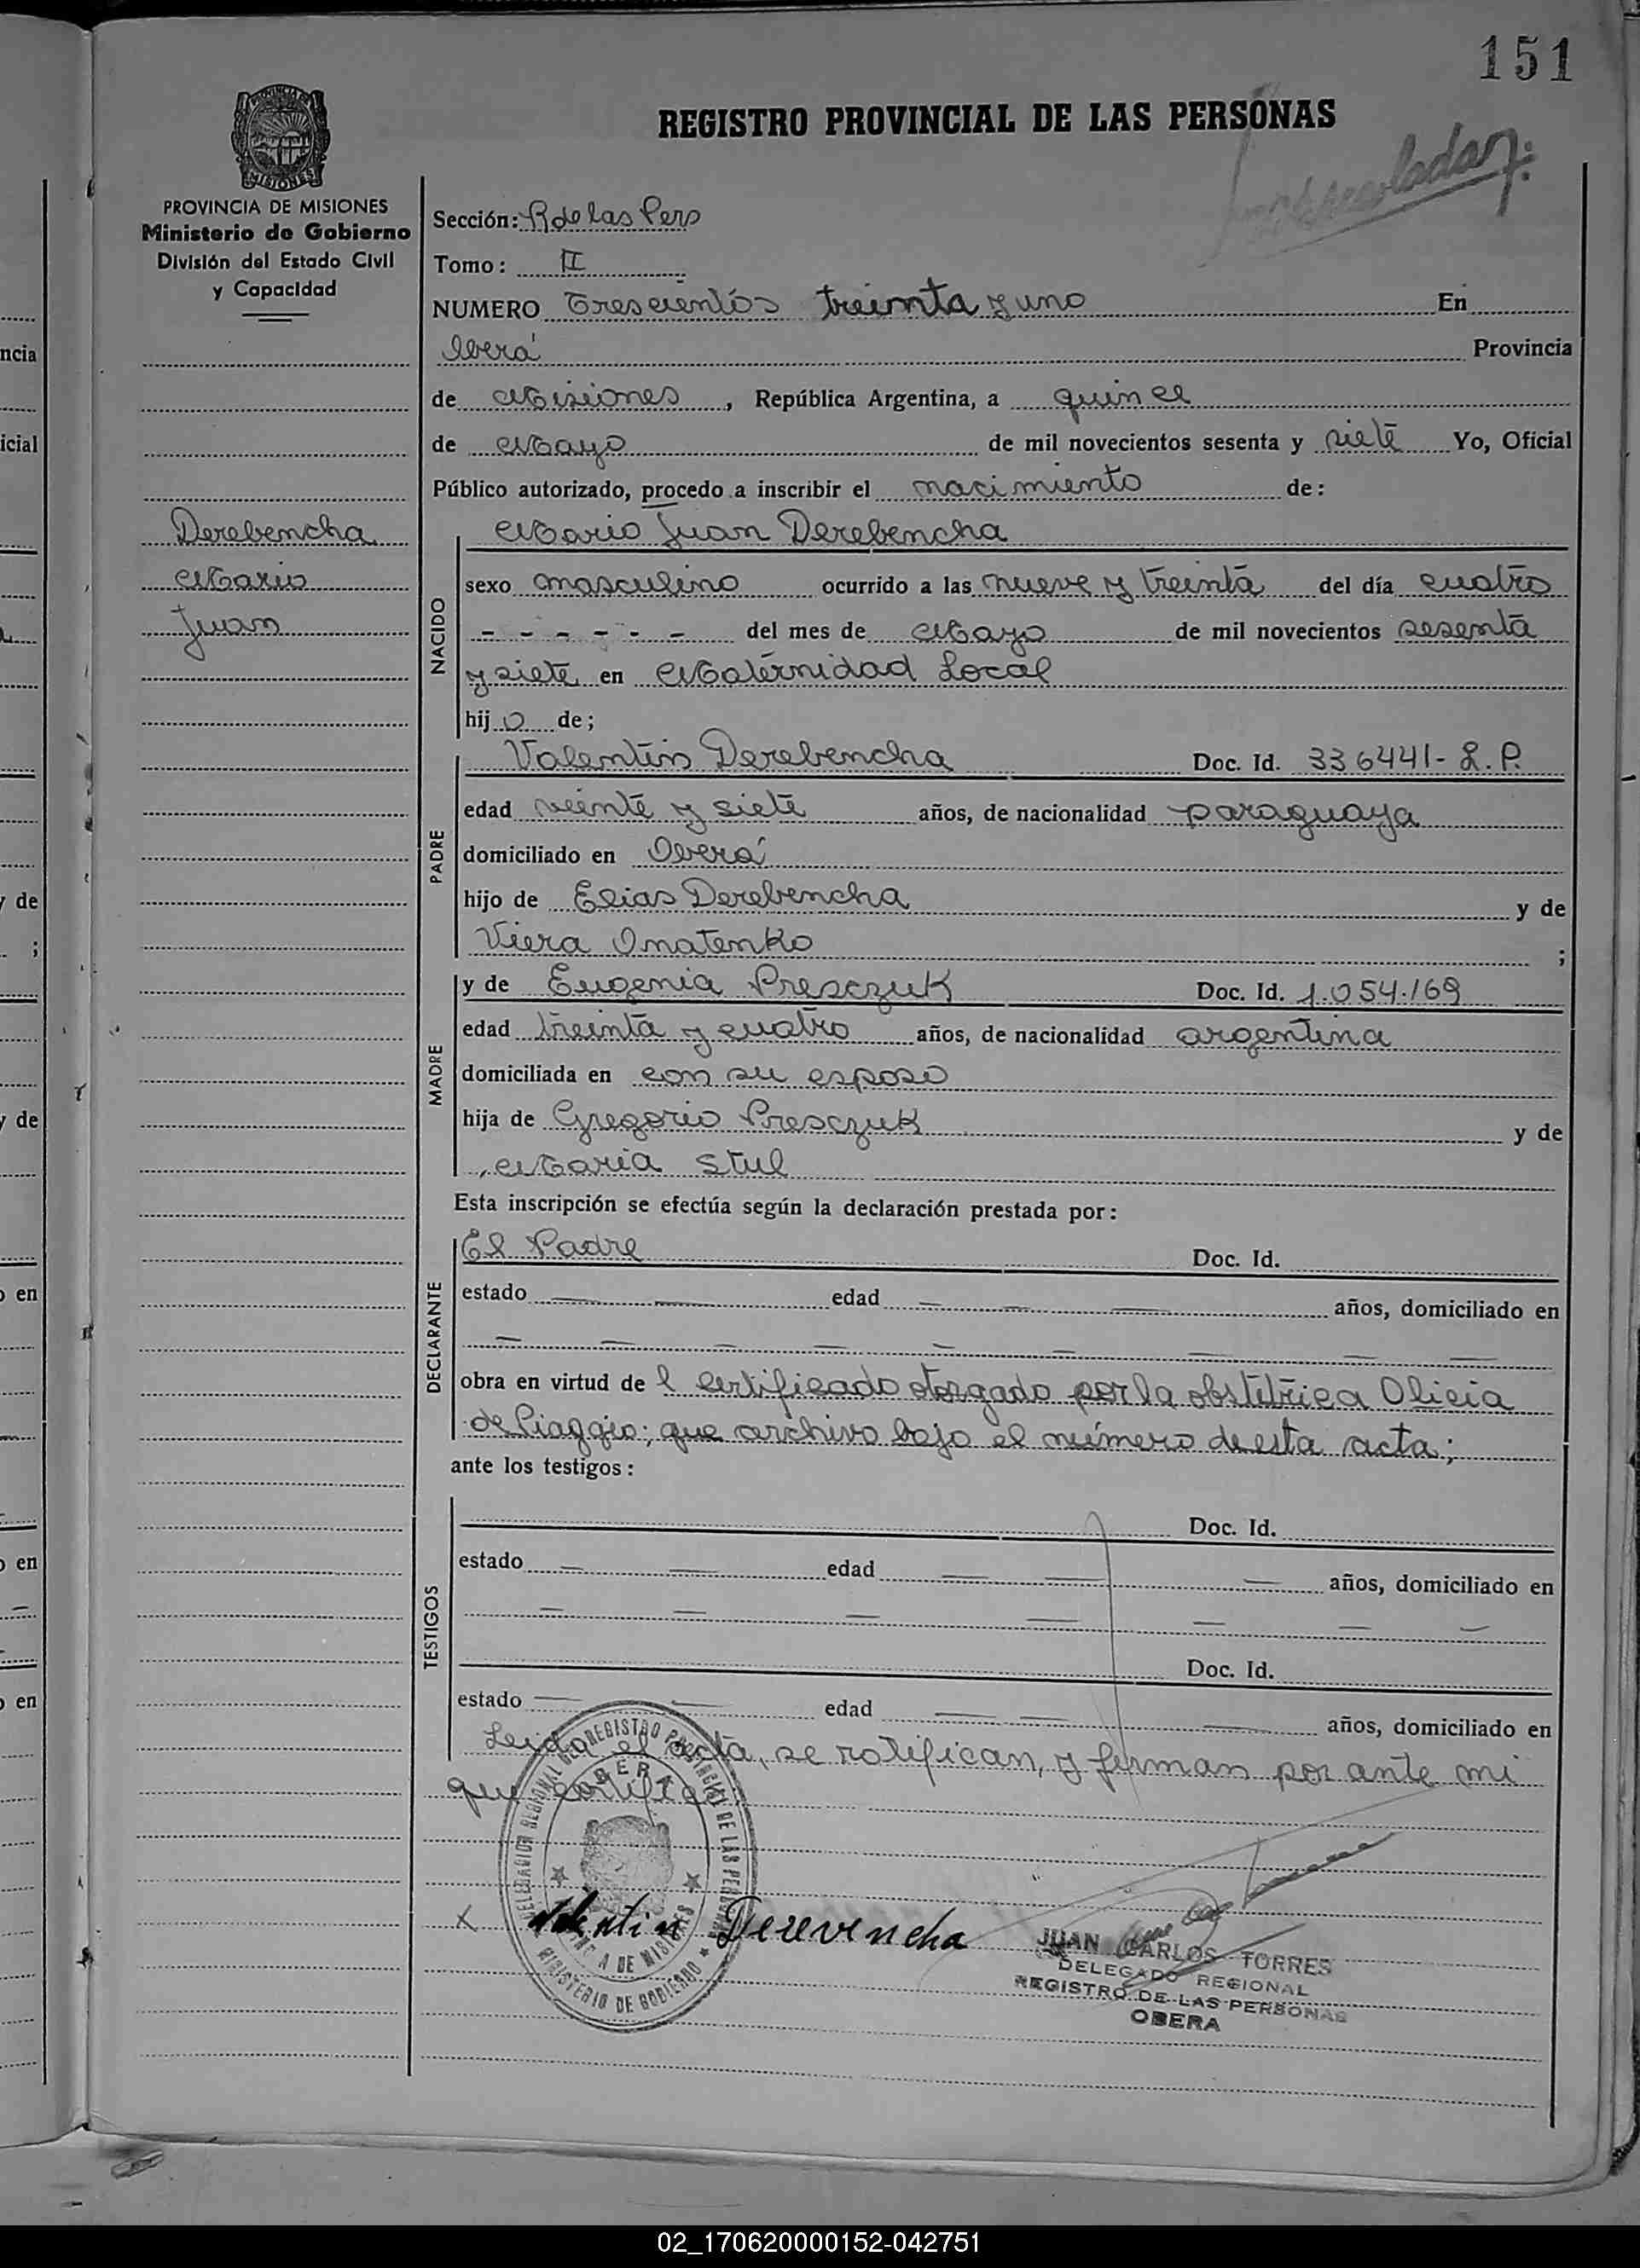 151
REGISTRO PROVINCIAL DE LAS PERSONAS
PROVINCIA DE MISIONES
Ministerio de Gobierno
División del Estado Civil
y Capacidad
Sección: R de las Pers
Tomo: II
NUMERO Trescientos treinta y uno En
Oberá Provincia
de Misiones, República Argentina, a quince
de Mayo de mil novecientos sesenta y siete Yo, Oficial
Público autorizado, procedo a inscribir el nacimiento de:
Derebencha
Mario
Juan
NACIDO
Mario Juan Derebencha
sexo masculino ocurrido a las nueve y treinta del día cuatro
- - - - - - del mes de Mayo de mil novecientos sesenta
y siete en Maternidad Local
hijo de;
PADRE
Valentin Derebencha Doc. Id. 336441- L.P.
edad veinte y siete años, de nacionalidad paraguaya
domiciliado en Oberá
hijo de Elias Derebencha y de
Viera Onatenko ;
MADRE
y de Eugenia Presczuk Doc. Id. 1.054.169
edad treinta y cuatro años, de nacionalidad argentina
domiciliada en con su esposo
hija de Gregorio Presczuk y de
Maria Stul
Esta inscripción se efectúa según la declaración prestada por:
DECLARANTE
El Padre Doc. Id.
estado edad años, domiciliado en
obra en virtud de l certificado otorgado por la obstétrica Olicia
de Piaggio; que archivo bajo el número de esta acta;
ante los testigos:
TESTIGOS
Doc. Id.
estado edad años, domiciliado en
Doc. Id.
estado edad años, domiciliado en
Leida el acta, se ratifican, y firman por ante mi
que certifico
DELEGACION REGIONAL DEL REGISTRO PROVINCIAL DE LAS PERSONAS
OBERA
MINISTERIO DE GOBIERNO
x Valentin Derevencha
JUAN CARLOS TORRES
DELEGADO REGIONAL
REGISTRO DE LAS PERSONAS
OBERA
ncia
icial
y de
;
y de
o en
o en
o en
02_170620000152-042751